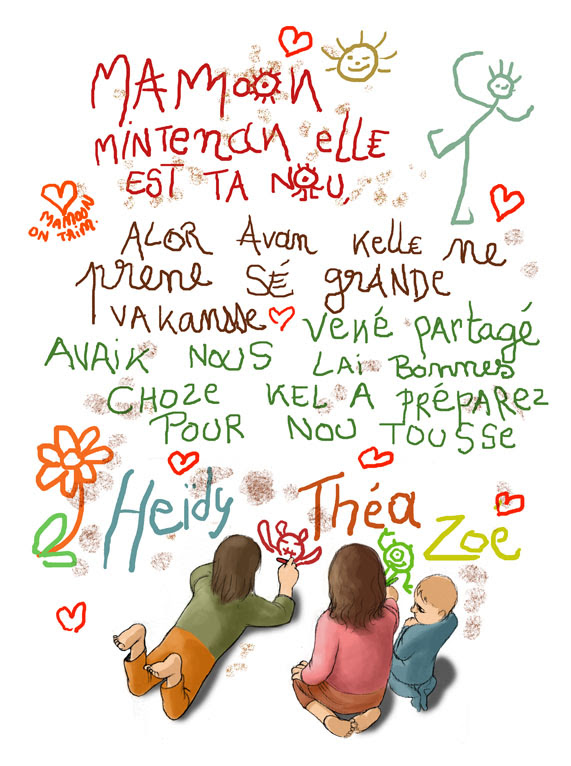 MAMOON
MINTENAN ELLE
EST TA NOU,
MAMOON
ON T'AIM.
ALOR AVAN KELLE NE
PRENE SÉ GRANDE
VAKANSSE VENÉ PARTAGÉ
AVAIK NOUS LAI BONNES
CHOZE KEL A PRÉPAREZ
POUR NOU TOUSSE
Heidy Théa Zoe